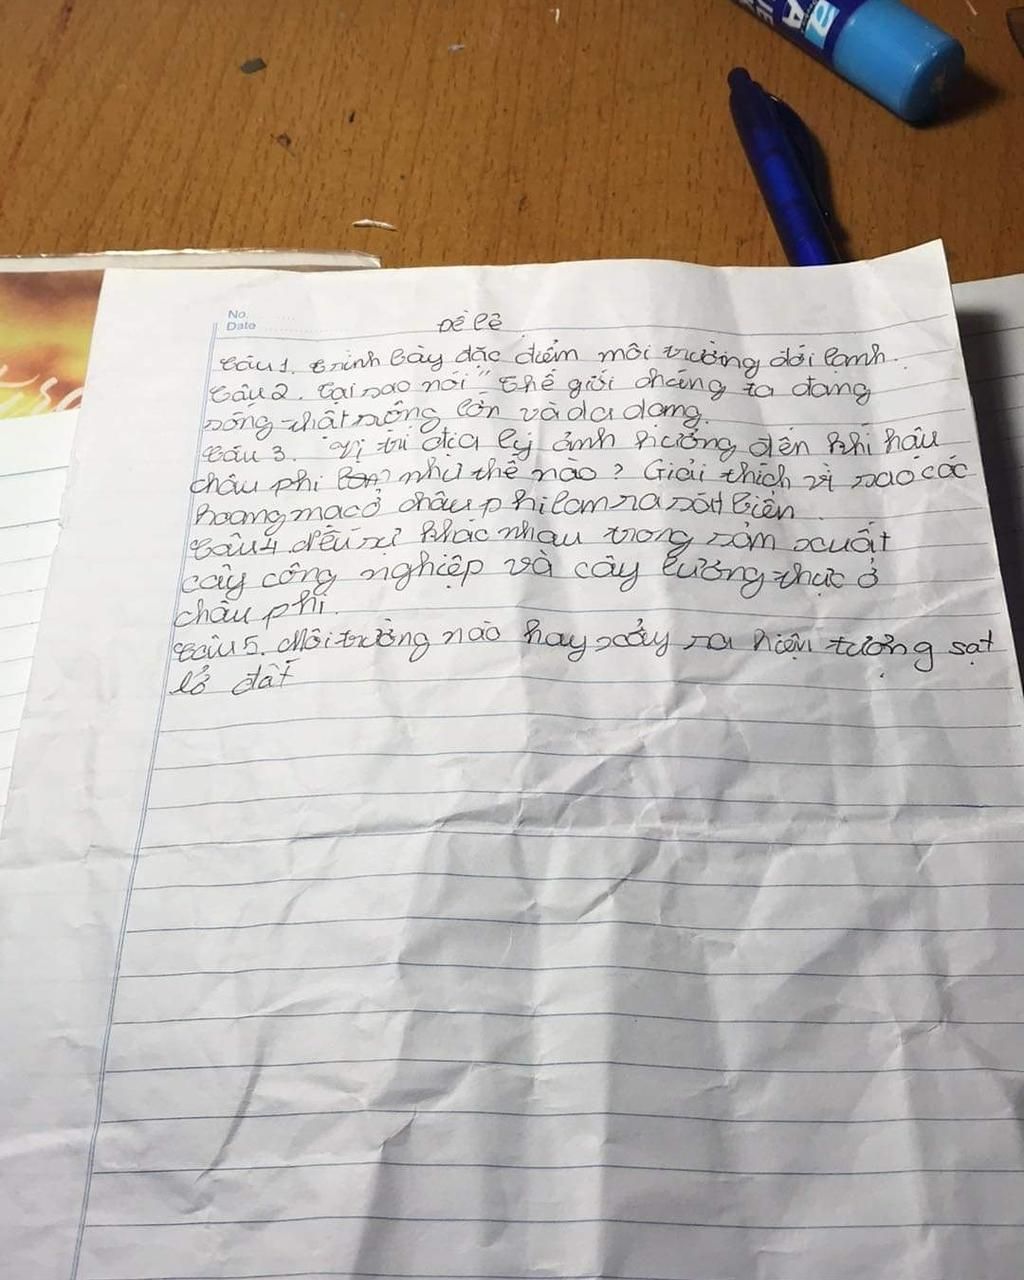 No.
Date
Đề lẽ
Câu 1. Trình bày đặc điểm môi trường đới lạnh.
Câu 2. Tại sao nói "thế giới chúng ta đang
sống thật rộng lớn và đa dạng.
Câu 3. Vị trí địa lý ảnh hưởng đến khí hậu
châu phi như thế nào? Giải thích vì sao các
hoang mạc ở châu phi lan ra sát biển
Câu 4 nêu sự khác nhau trong sản xuất
cây công nghiệp và cây lương thực ở
châu phi.
Câu 5. Môi trường nào hay xảy ra hiện tượng sạt
lở đất